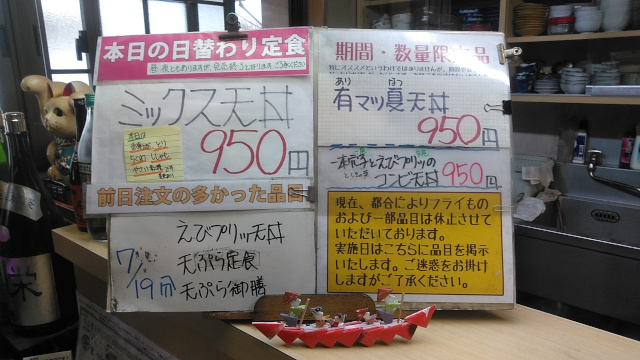 本日の日替わり定食
ミックス天丼
本日は
950円
前日注文の多かった品目
えびプリッ天丼
7/19分
天ぷら定食
天ぷら御膳
期間・数量限定品
あり
はつ
有マツ夏天丼
950円
一本穴子とえびプリッの
コンビ天丼 950円
現在、都合によりフライもの
および一部品目は休止させて
いただいております。
実施日はこちらに品目を掲示
いたします。ご迷惑をお掛け
しますがご了承ください。
栄